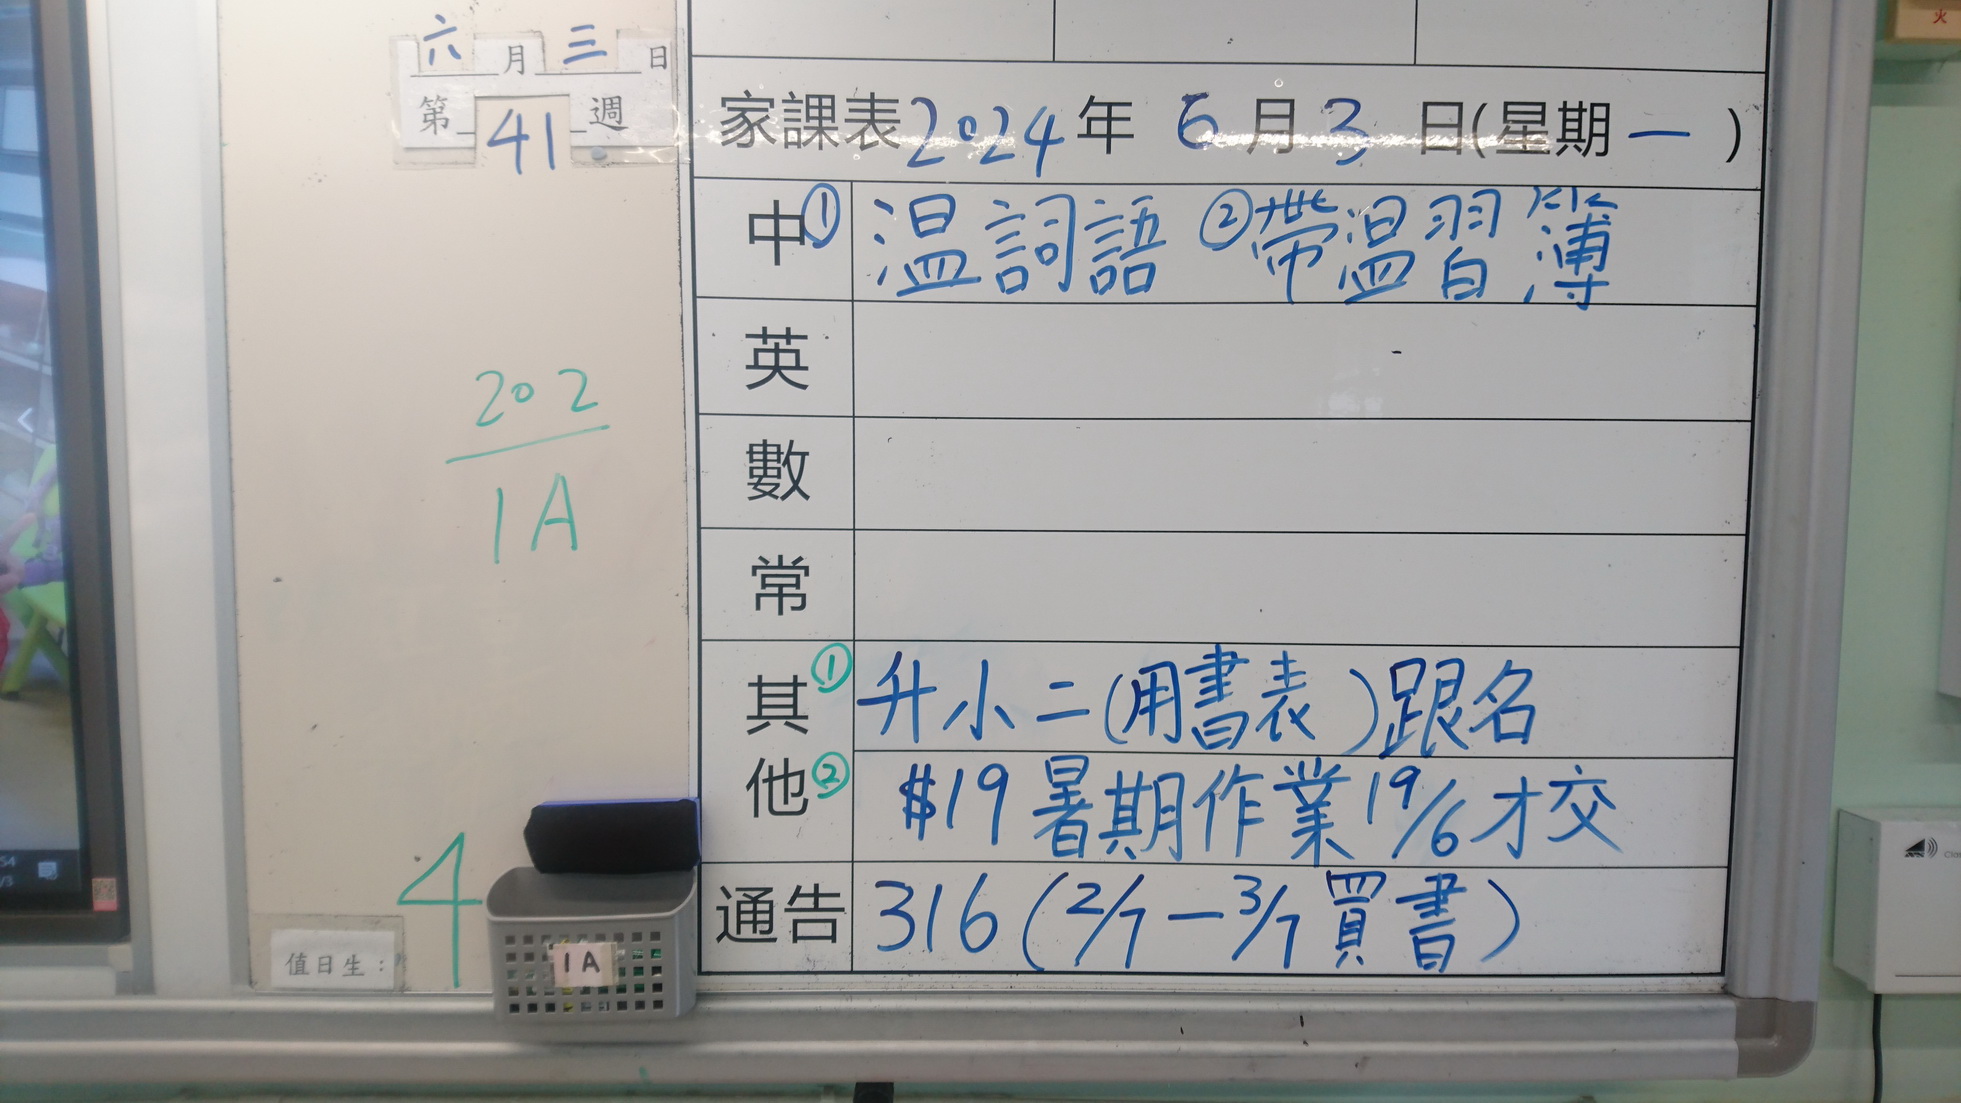 六月三日
第41週
202
1A
4
值日生：
1A
家課表2024年6月3日(星期一)
中①温詞語 ②帶温習簿
英
數
常
其他①升小二(用書表)跟名
②$19暑期作業19/6才交
通告 316(2/7—3/7買書)
火